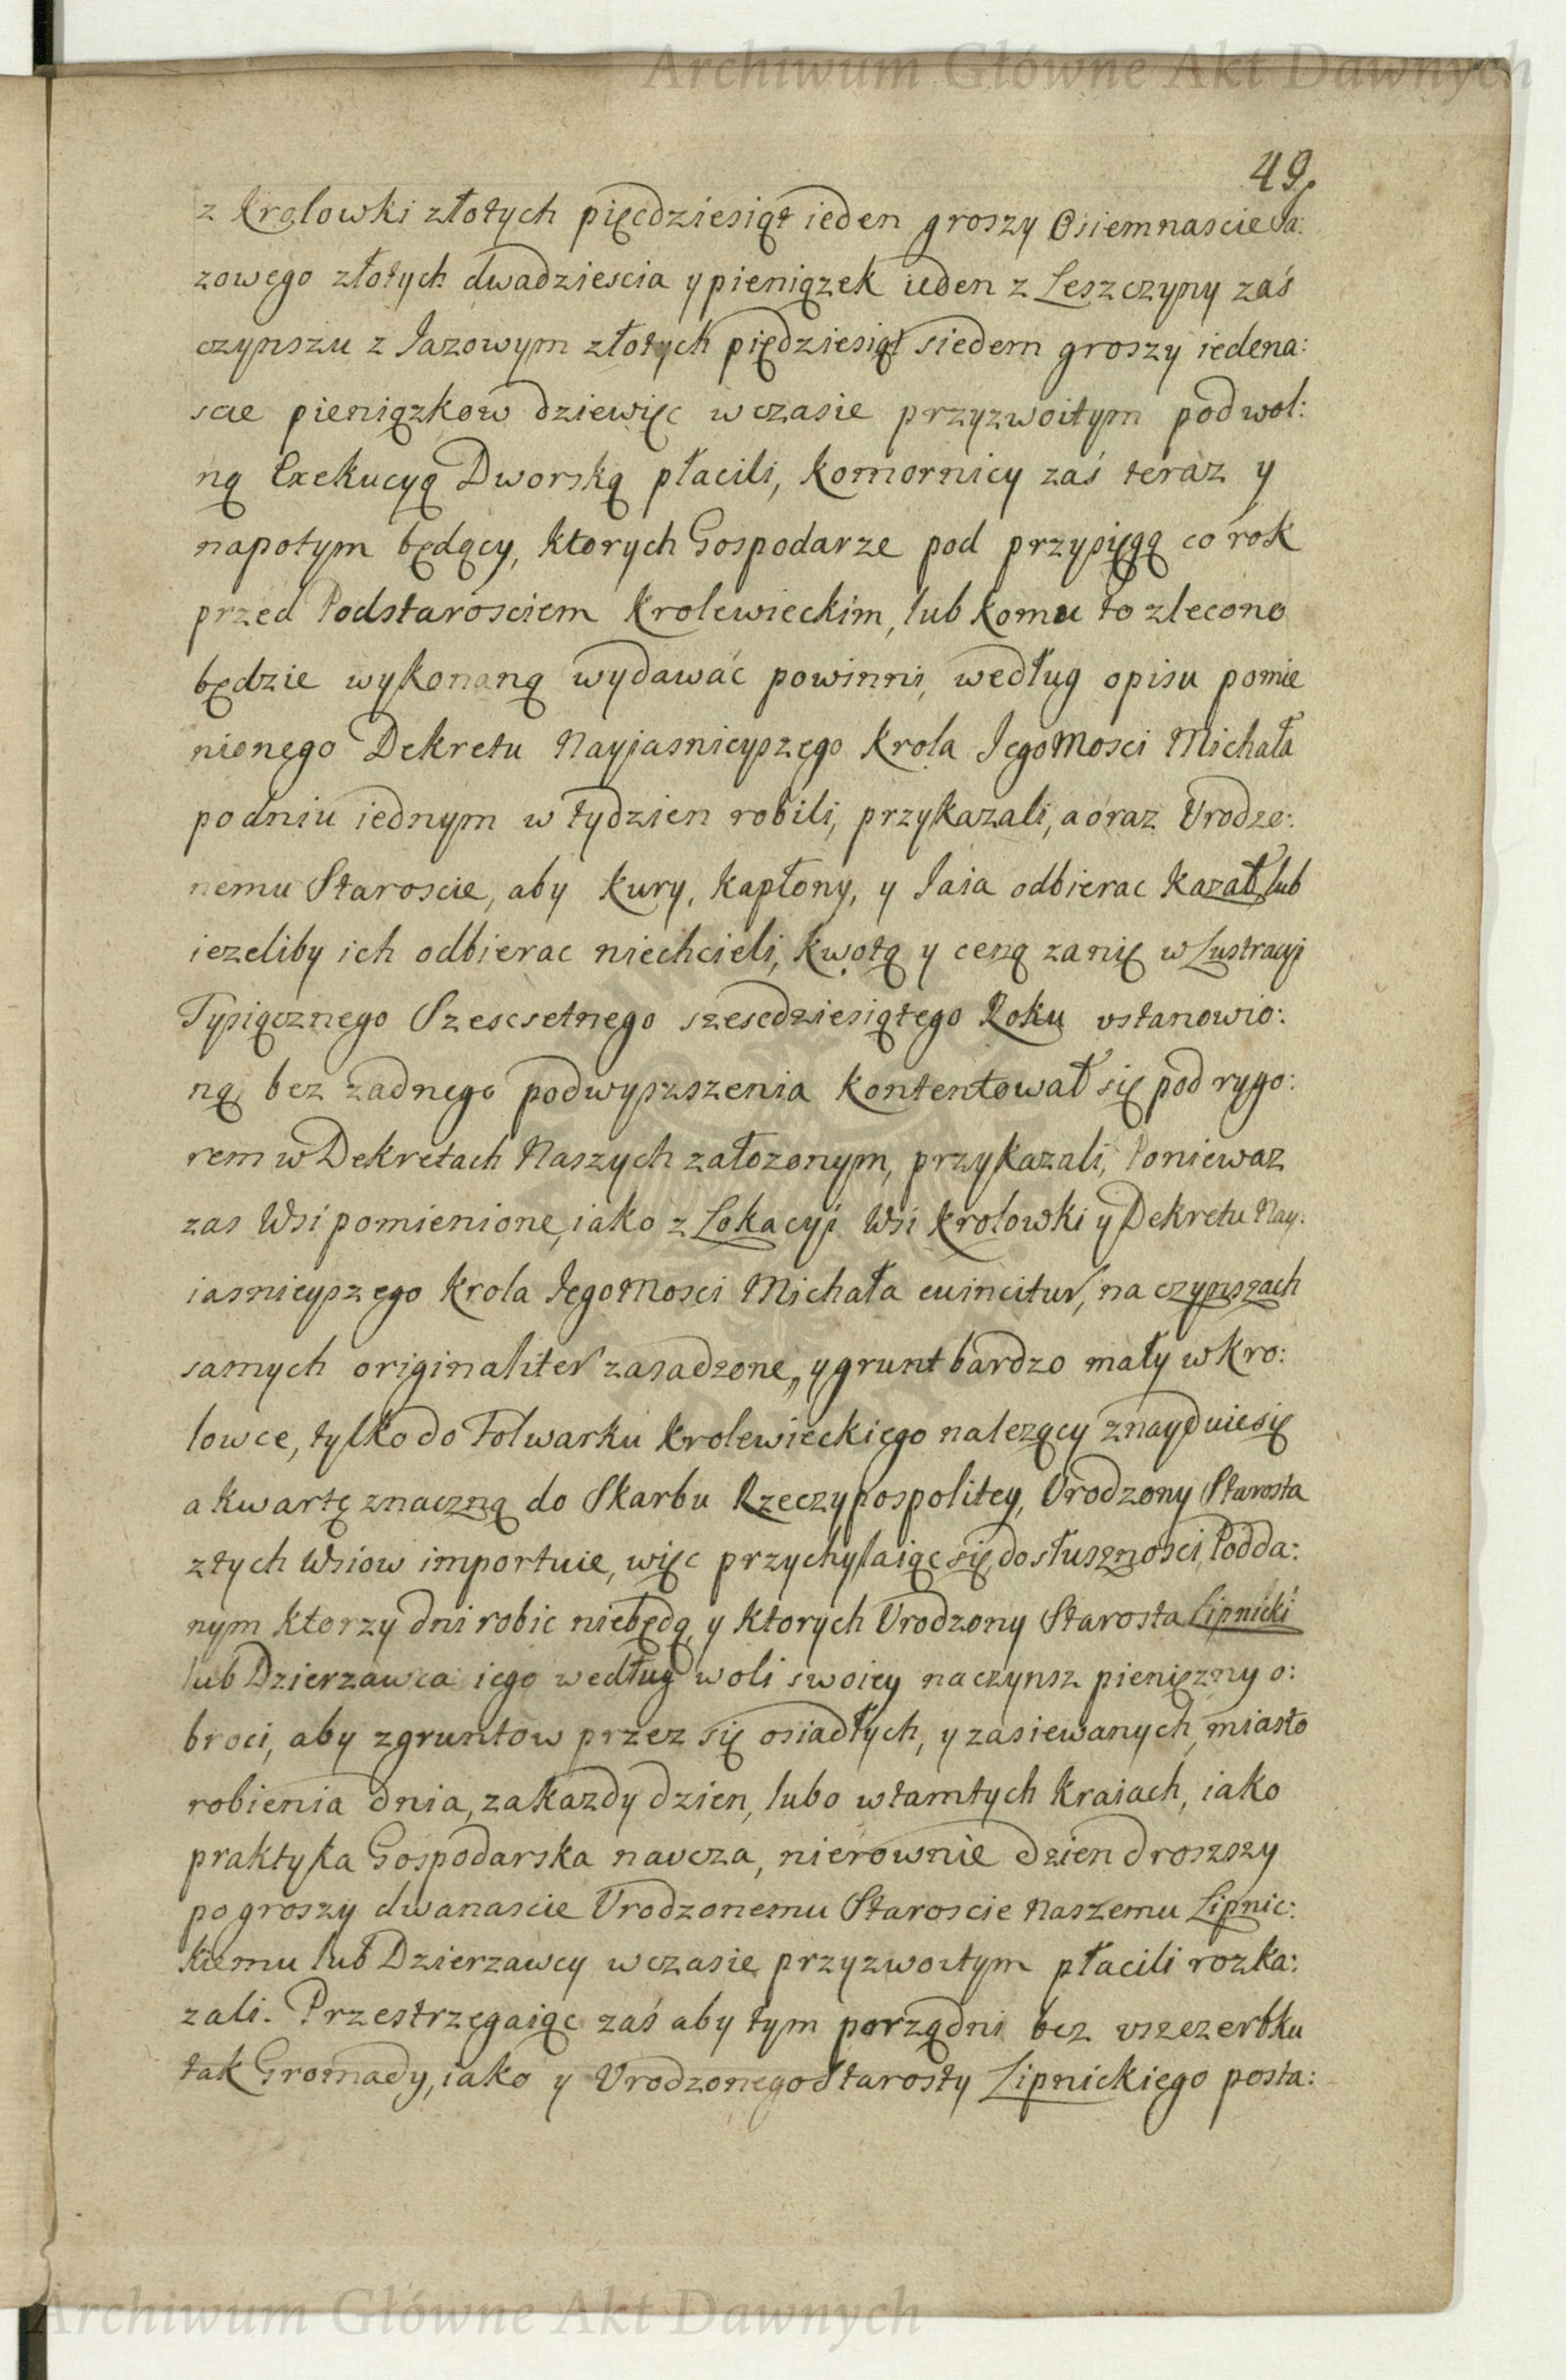 Archiwum Główne Akt Dawnych
49
z Krolowki złotych pięcdziesiąt ieden groszy Osiemnascie Ja:
zowego złotych dwadziescia y pieniązek ieden z Leszczyny zaś
czynszu z Jazowym złotych piędziesiąt siedem groszy iedena:
scie pieniązkow dziewięc w czasie przyzwoitym pod wol:
ną Exekucyą Dworską płacili, Komornicy zaś teraz y
napotym będący, ktorych Gospodarze pod przysięgą co rok
przed Podstarosciem Krolewieckim, lub komu to zlecono
będzie wykonaną wydawać powinni, według opisu pomie
nionego Dekretu Nayjasnieyszego Krola JegoMosci Michała
po dniu iednym w tydzien robili, przykazali, a oraz Urodzo:
nemu Staroscie, aby kury, kapłony, y Jaia odbierac kazał, lub
iezeliby ich odbierac niechcieli, kwotą y ceną za nię w Lustracyi
Tysiącznego Szescsetnego szescdziesiątego Roku ustanowio:
ną, bez zadnego podwyszszenia kontentował się pod rygo:
rem w Dekretach Naszych załozonym, przykazali, Poniewaz
zas Wsi pomienione, iako z Lokacyi Wsi Krolowki y Dekretu Nay:
iasnieyszego Krola JegoMosci Michała euincitur, na czynszach
samych originaliter zasadzone, y grunt bardzo mały w Kro:
lowce, tylko do Folwarku Krolewieckiego nalezący znayduie się
a kwartę znaczną do Skarbu Rzeczypospolitey, Urodzony Starosta
z tych Wsiow importuie, więc przychylaiąc się do słusznosci, Podda:
nym ktorzy dni robic niebędą, y ktorych Urodzony Starosta Lipnicki
lub Dzierzawca iego według woli swoiey na czynsz pieniężny o:
broci, aby z gruntow przez się osiadłych, y zasiewanych, miasto
robienia dnia, za kazdy dzien, lubo w tamtych kraiach, iako
praktyka Gospodarska naucza, nierownie dzien droszszy
po groszy dwanascie Urodzonemu Staroscie Naszemu Lipnic:
kiemu lub Dzierzawcy w czasie przyzwoitym płacili rozka:
zali. Przestrzegaiąc zaś aby tym porządni bez uszczerbku
tak Gromady, iako y Urodzonego Starosty Lipnickiego posta:
Archiwum Główne Akt Dawnych